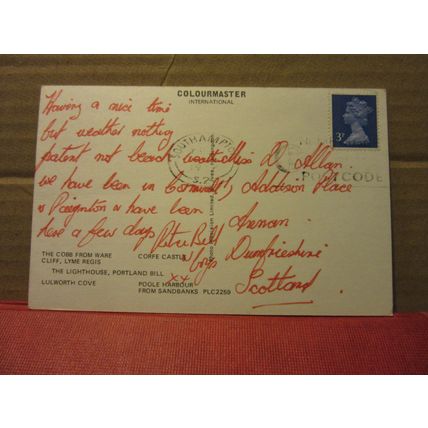 COLOURMASTER
INTERNATIONAL
Having a nice time
but weather nothing
patent not beach weather
we have been in Cornwall
& Paignton & have been
here a few days
Peter Bill
& boys
xx
Miss D. Allan
11, Addison Place
Annan
Dumfriesshire
Scotland
SOUTHAMPTON
POSTCODE
3P
THE COBB FROM WARE
CLIFF, LYME REGIS
CORFE CASTLE
THE LIGHTHOUSE, PORTLAND BILL
LULWORTH COVE
POOLE HARBOUR
FROM SANDBANKS PLC2259